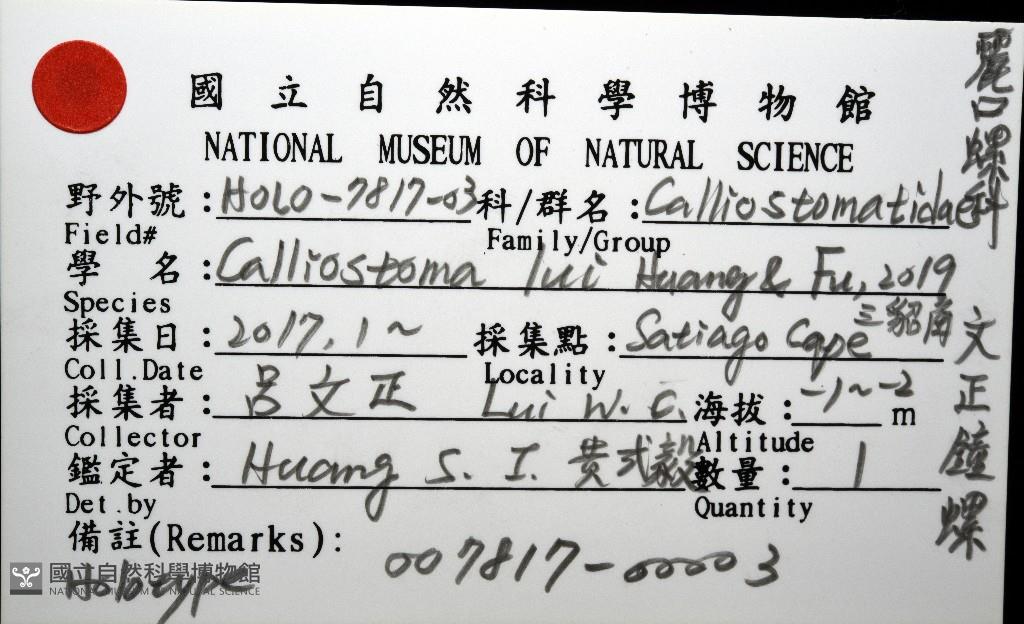 國立自然科學博物館
NATIONAL MUSEUM OF NATURAL SCIENCE
野外號：HOLO-7817-03 科/群名：Calliostomatidae
Field# Family/Group
學 名：Calliostoma lui Huang & Fu, 2019
Species
採集日：2017. 1~ 採集點：Satiago Cape 三貂角
Coll.Date Locality
採集者：呂文正 Lui W. C. 海拔：-1~-2 m
Collector Altitude
鑑定者：Huang S. I. 黄式毅 數量：1
Det.by Quantity
備註(Remarks)：
007817-00003
Holotype
國立自然科學博物館
NATIONAL MUSEUM OF NATURAL SCIENCE
麗口螺科
文正鐘螺